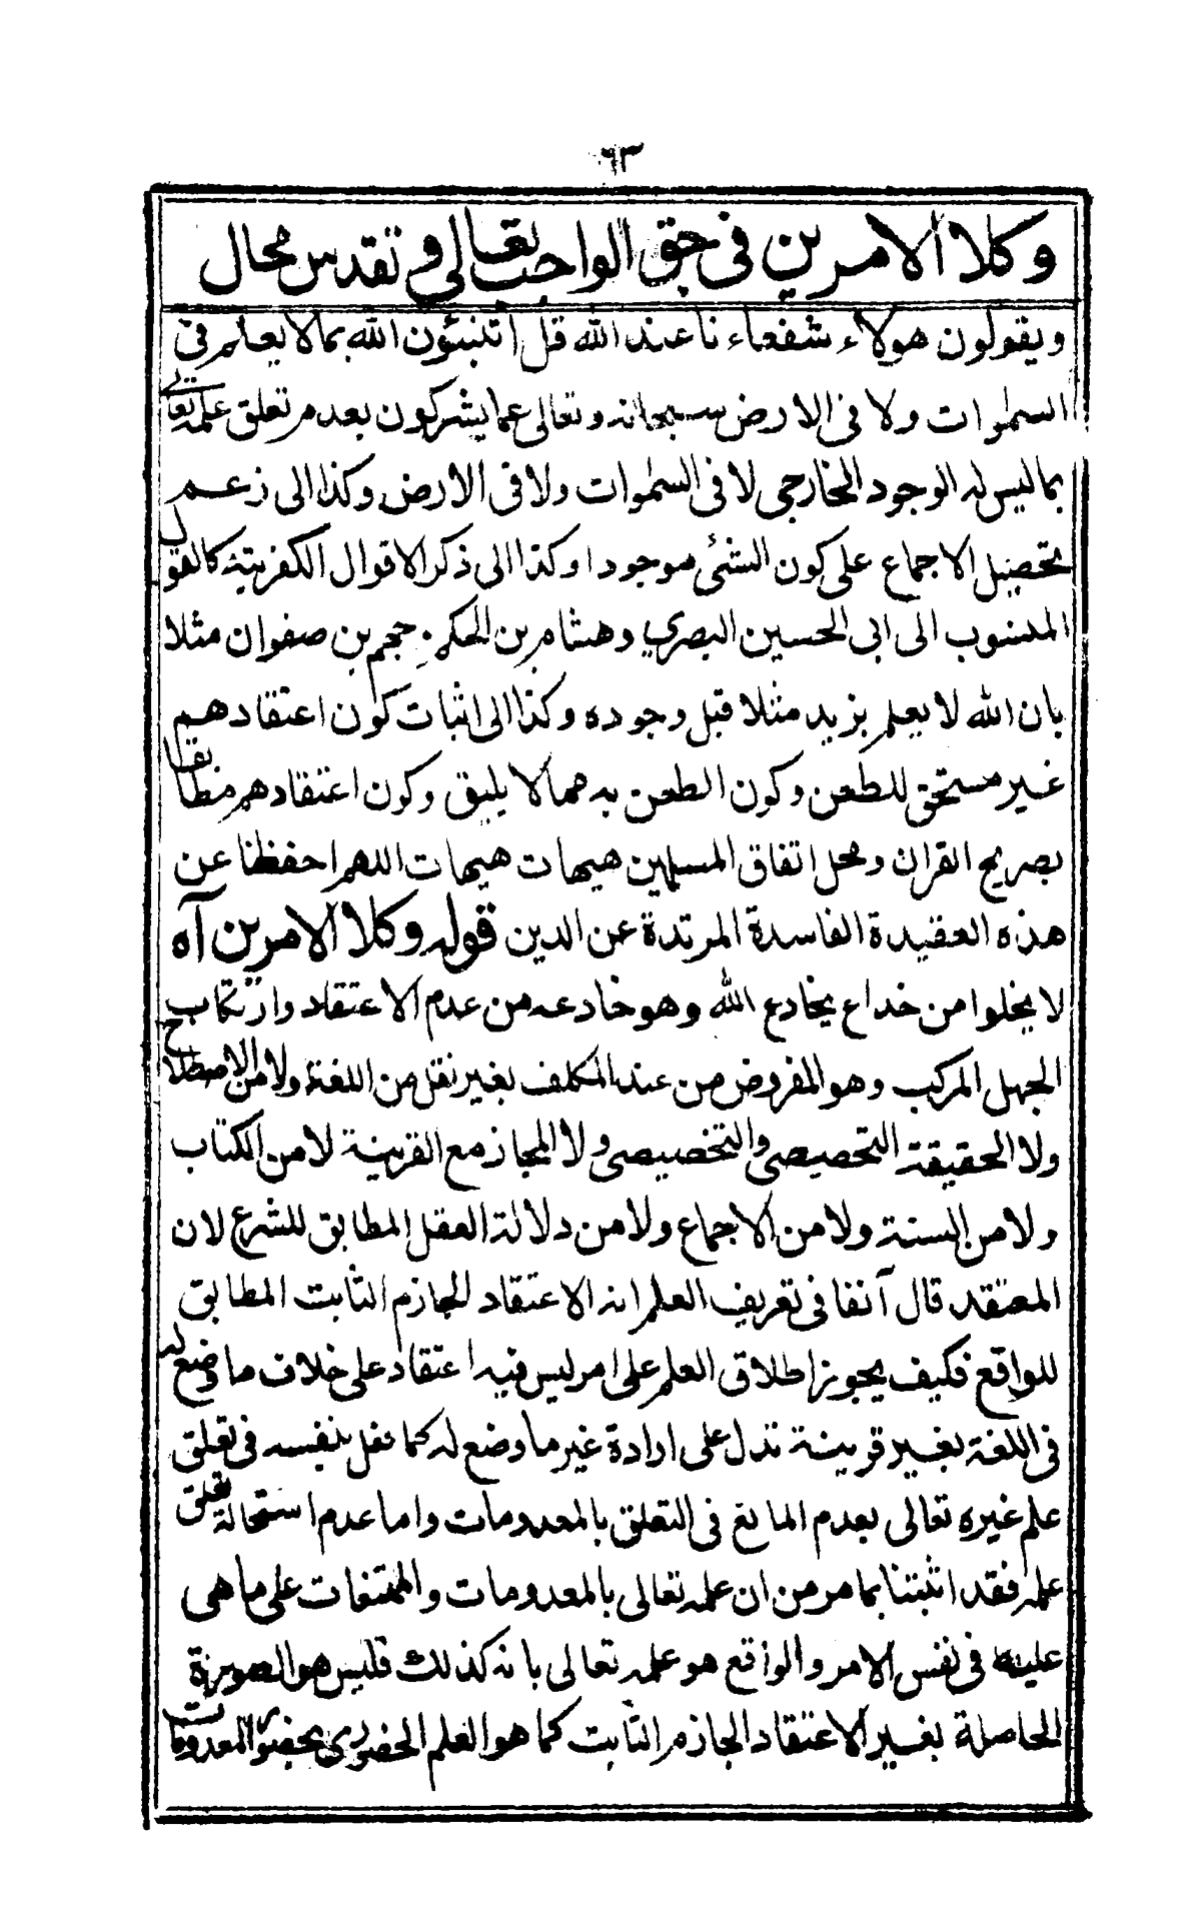 ٦٣
وكلا الامرين فى حق الواجب تعالى وتقدس محال
ويقولون هولاء شفعاءنا عند الله قل اتنبئون الله بما لا يعلم فى
السموات ولا فى الارض سبحانه وتعالى عما يشركون بعدم تعلق علمه تعالى
بما ليس له الوجود الخارجى لا فى السموات ولا فى الارض وكذا الى زعم
تحصيل الاجماع على كون الشئ موجودا وكذا الى ذكر الاقوال الكفرية كالقول
المنسوب الى ابى الحسين البصري وهشام بن الحكم جهم بن صفوان مثلا
بان الله لا يعلم بزيد مثلا قبل وجوده وكذا الى اثبات كون اعتقادهم
غير مستحق للطعن وكون الطعن به مما لا يليق وكون اعتقادهم مطابقا
بصريح القران ومحل اتفاق المسلمين هيهات هيهات اللهم احفظنا عن
هذه العقيدة الفاسدة المرتدة عن الدين قوله وكلا الامرين آه
لا يخلوا من خداع يخادع الله وهو خادعه من عدم الاعتقاد وارتكاب
الجهل المركب وهو المفروض من عند المكلف بغير نقل من اللغة ولا من الاصطلاح
ولا الحقيقة التحصيصى والتخصيصى ولا المجاز مع القرينة لا من الكتاب
ولا من السنة ولا من الاجماع ولا من دلالة العقل المطابق للشرع لان
المعتقد قال آنفا فى تعريف العلم انه الاعتقاد الجازم الثابت المطابق
للواقع فكيف يجوز اطلاق العلم على امر ليس فيه اعتقاد على خلاف ما وضع له
فى اللغة بغير قرينة تدل على ارادة غير ما وضع له كما نقل بنفسه فى تعلق
علم غيره تعالى بعدم المانع فى التعلق بالمعدومات واما عدم استحالة تعلق
علمه فقد اثبتنا بما مر من ان علمه تعالى بالمعدومات والممتنعات على ما هى
عليه فى نفس الامر والواقع هو علمه تعالى بانه كذلك فليس هو الصورة
الحاصلة بغير الاعتقاد الجازم الثابت كما هو العلم الحضورى بحضور المعدومات